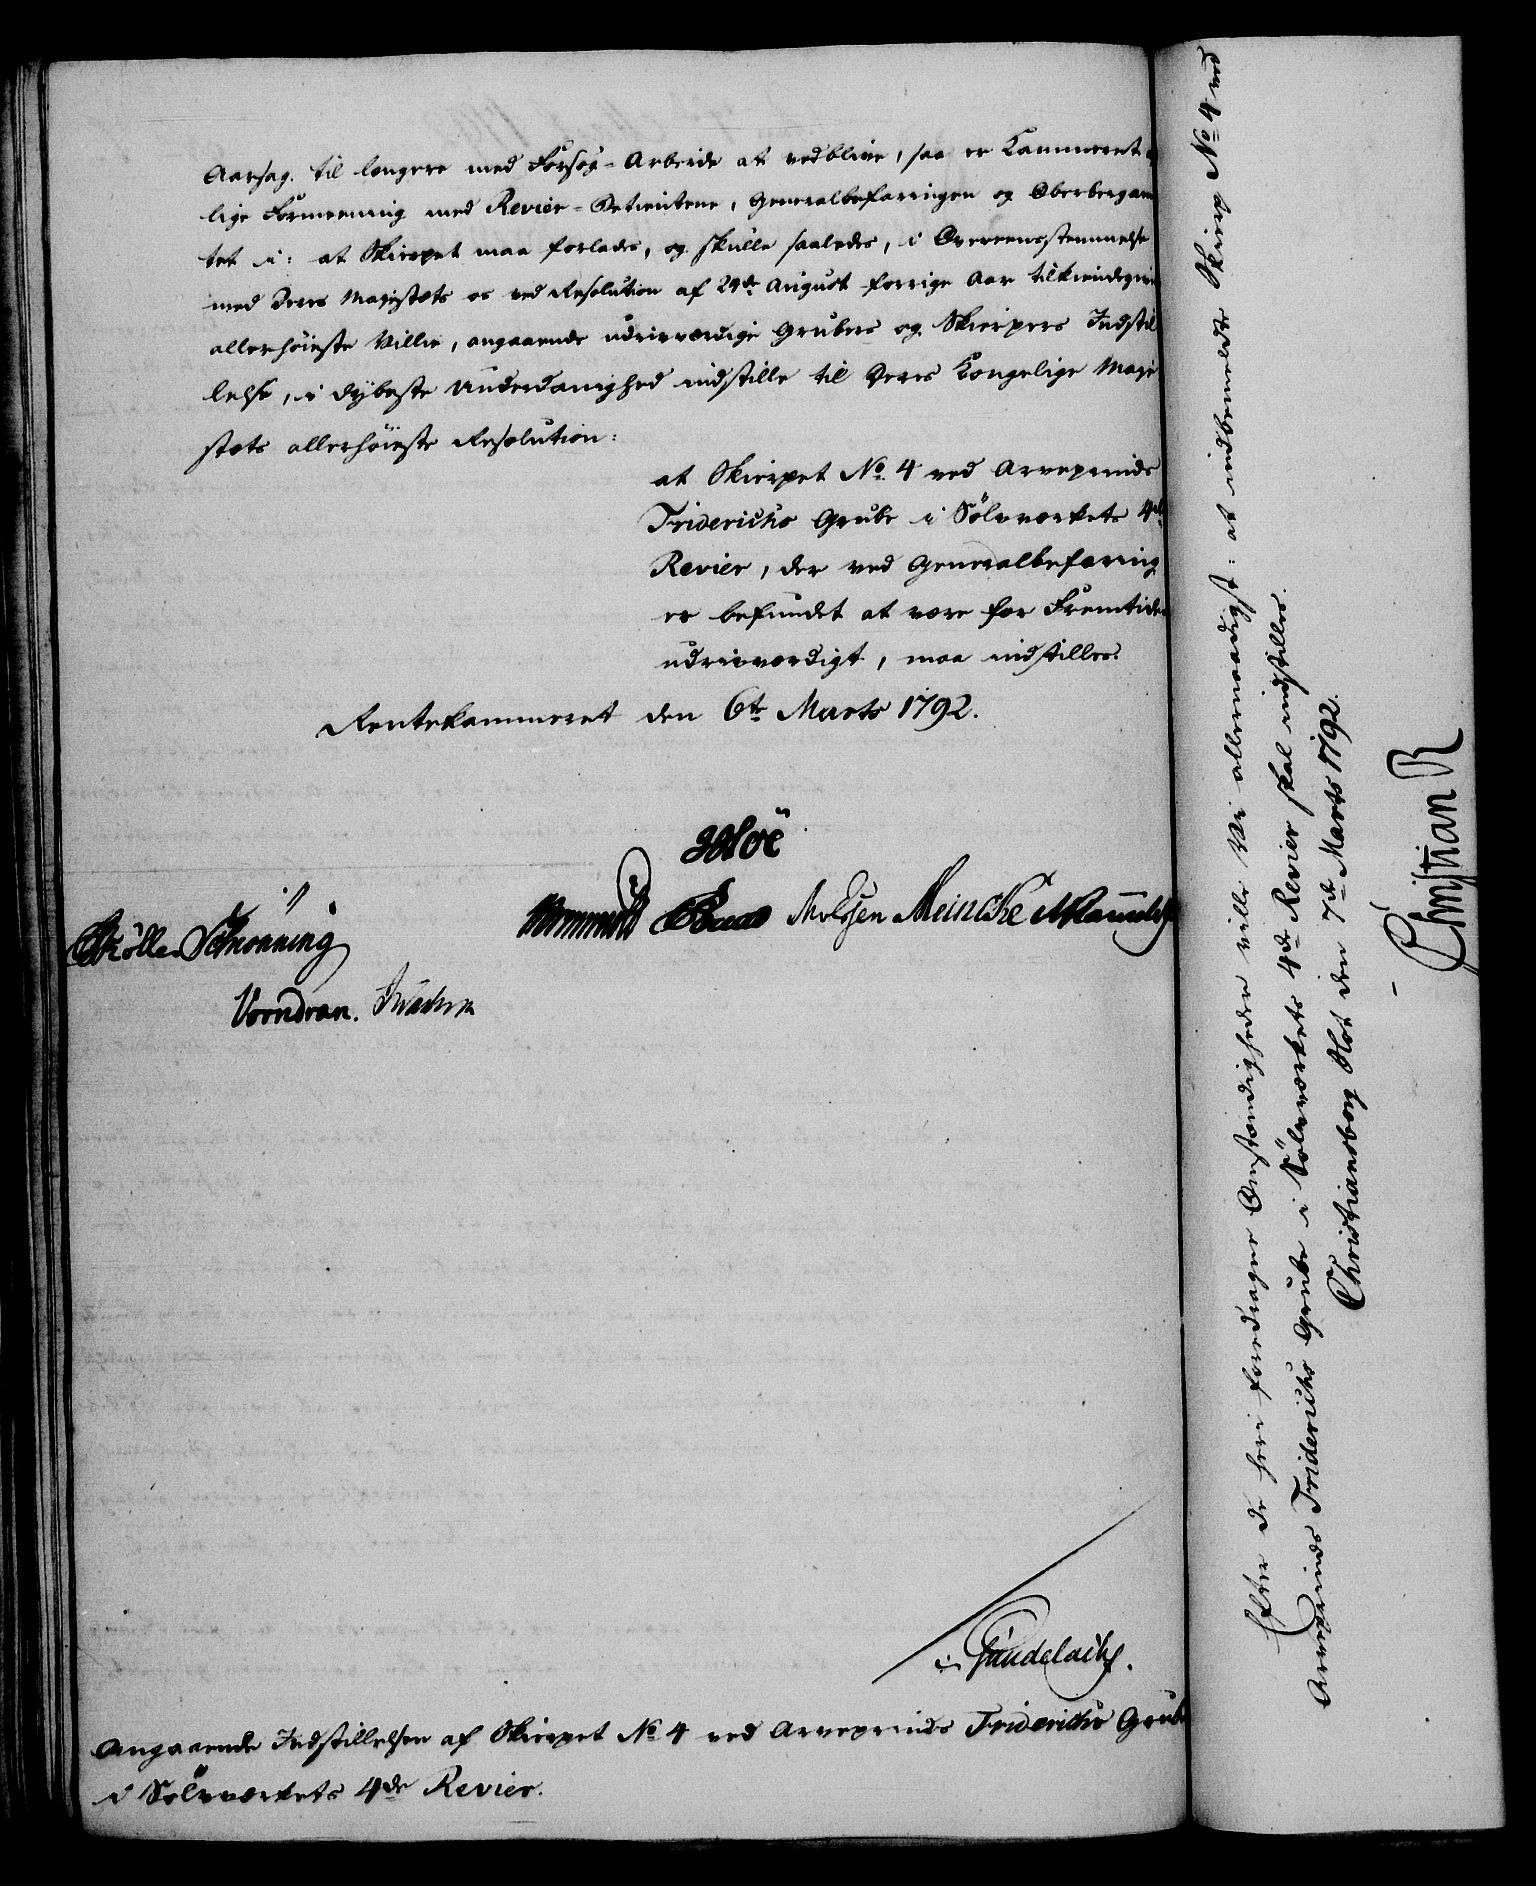 Aarsag til længere med Forsøg-Arbeide at vedblive, saa er Kammeret
lige Formeening med Revier-Betientene, Generalbefaringen og Oberbergam
tet i: at Skierpet maa forlades, og skulle saaledes, i Overeensstemmelse
med Deres Majestæts os ved Resolution af 29de August forrige Aar tilkiendegivne
allerhøieste Villie, angaaende udrivværdige Grubers og Skierpers Indstil
lelse, i dybeste Underdanighed indstille til Deres Kongelige Maje
stæts allerhøieste Resolution:
at Skierpet No 4 ved Arveprinds
Friderichs Grube i Sölvværkets 4de
Revier, der ved Generalbefaring
er befundet at være for Fremtiden
udrivværdigt, maa indstilles.
Rentekammeret den 6te Marts 1792.
Hoë
Wormskiold Meincke
Schrönning
Vorndran.
Gündelach.
Angaaende Indstillelsen af Skierpet No 4 ved Arveprinds Friderichs Grube
i Sölvværkets 4de Revier.
Efter de heri foredragne Omstændigheder ville Vi allernaadigst: at indbemeldte Skierp No 4 ved
Arveprinds Friderichs Grube i Sölvværkets 4de Revier skal indstilles.
Christiansborg Slot den 7de Marts 1792.
Christian R